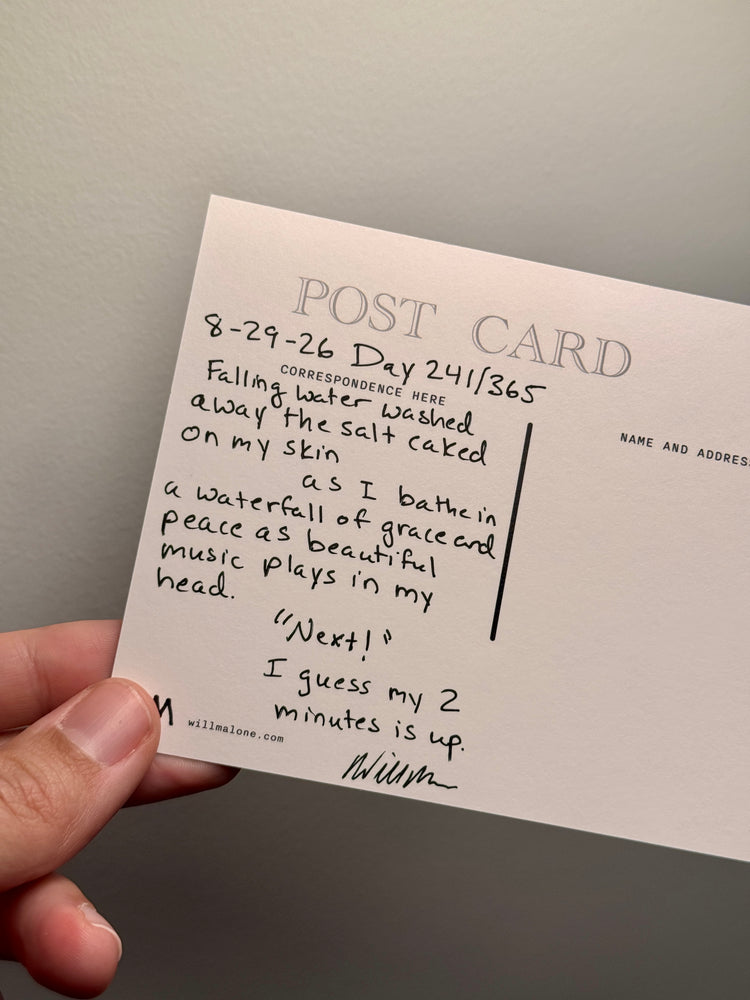 POST CARD
8-29-26 Day 241/365
CORRESPONDENCE HERE
Falling water washed
away the salt caked
on my skin
as I bathe in
a waterfall of grace and
peace as beautiful
music plays in my
head.
"Next!"
I guess my 2
minutes is up.
willmalone.com
NAME AND